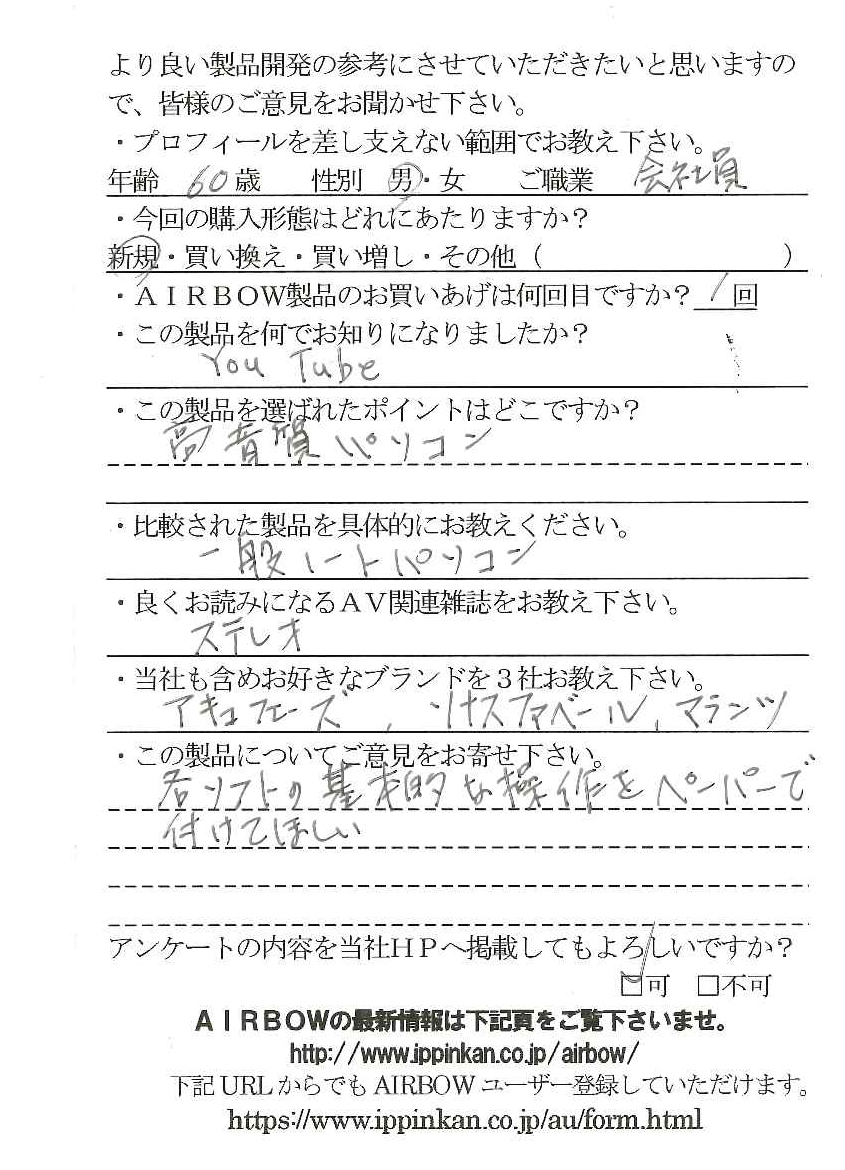 より良い製品開発の参考にさせていただきたいと思いますの
で、皆様のご意見をお聞かせ下さい。
・プロフィールを差し支えない範囲でお教え下さい。
年齢 60歳 性別 男・女 ご職業 会社員
・今回の購入形態はどれにあたりますか？
新規・買い換え・買い増し・その他（ ）
・ＡＩＲＢＯＷ製品のお買いあげは何回目ですか？ 1回
・この製品を何でお知りになりましたか？
You Tube
・この製品を選ばれたポイントはどこですか？
高音質パソコン
・比較された製品を具体的にお教えください。
一般ノートパソコン
・良くお読みになるＡＶ関連雑誌をお教え下さい。
ステレオ
・当社も含めお好きなブランドを３社お教え下さい。
アキュフェーズ、ソナスファベール、マランツ
・この製品についてご意見をお寄せ下さい。
各ソフトの基本的な操作をペーパーで
付けてほしい
アンケートの内容を当社ＨＰへ掲載してもよろしいですか？
☑可 □不可
ＡＩＲＢＯＷの最新情報は下記頁をご覧下さいませ。
http://www.ippinkan.co.jp/airbow/
下記 URL からでも AIRBOW ユーザー登録していただけます。
https://www.ippinkan.co.jp/au/form.html